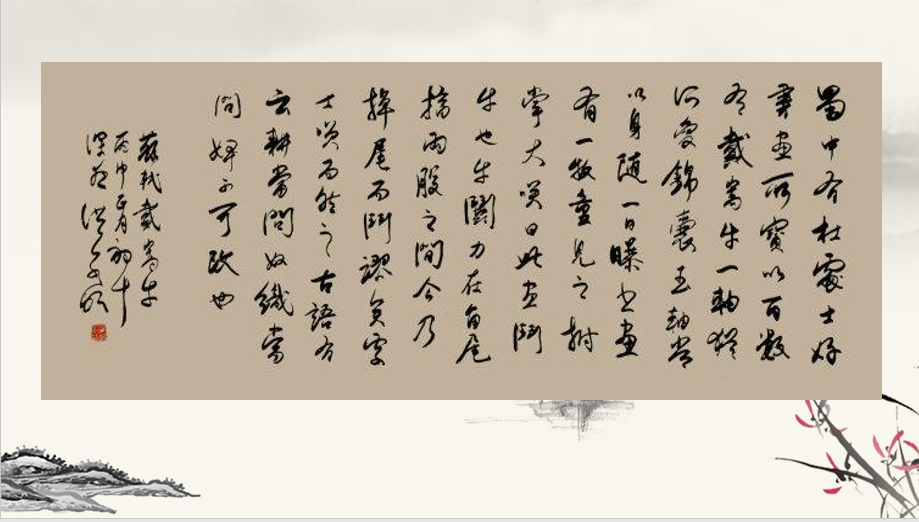 蜀中有杜處士好
書畫所寶以百數
有戴嵩牛一軸猶
所愛錦囊玉軸常
以身隨一日曝書畫
有一牧童見之拊
掌大笑曰此畫鬥
牛也牛鬬力在角尾
搐兩股之間今乃
掉尾而鬥謬矣處
士笑而然之古語有
云耕當問奴織當
問婢不可改也
蘇軾戴嵩牛
丙申正月初十